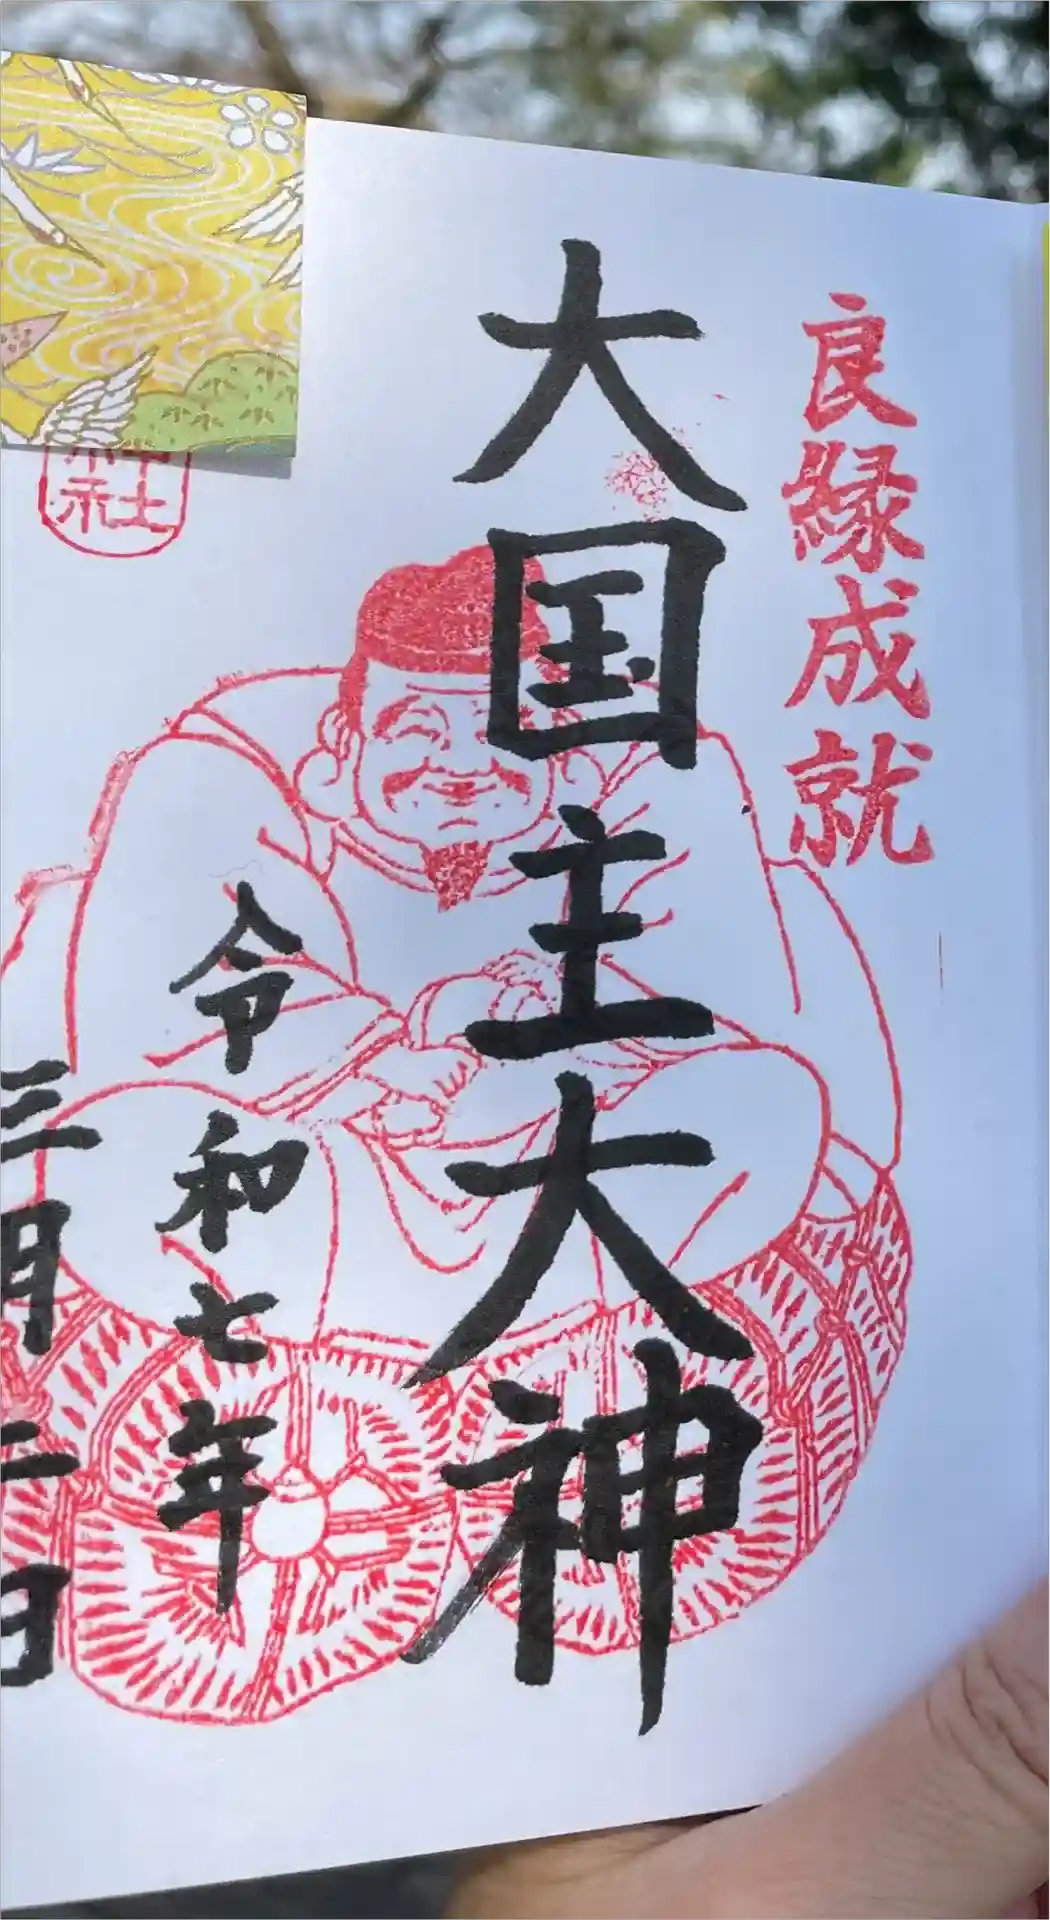 良縁成就
大国主大神
令和七年
三月二日
神社